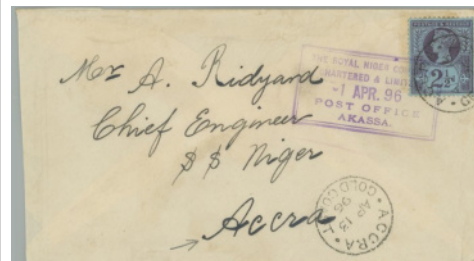 Mr A. Ridyard
Chief Engineer
SS Niger
Accra
THE ROYAL NIGER CO
CHARTERED & LIMIT
-1 APR. 96
POST OFFICE
AKASSA.
2½d
ACCRA
AP 13
96
GOLD CO